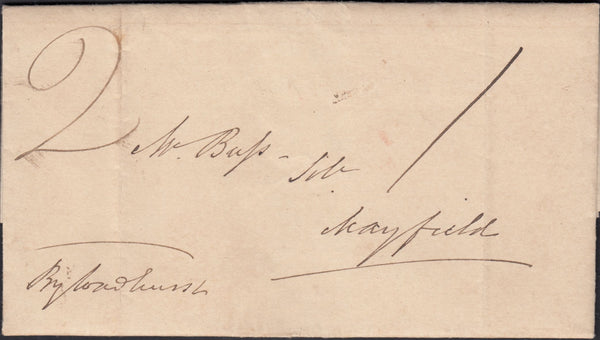 2 /
Mr. Buss
Solr
Mayfield
By Wadhurst